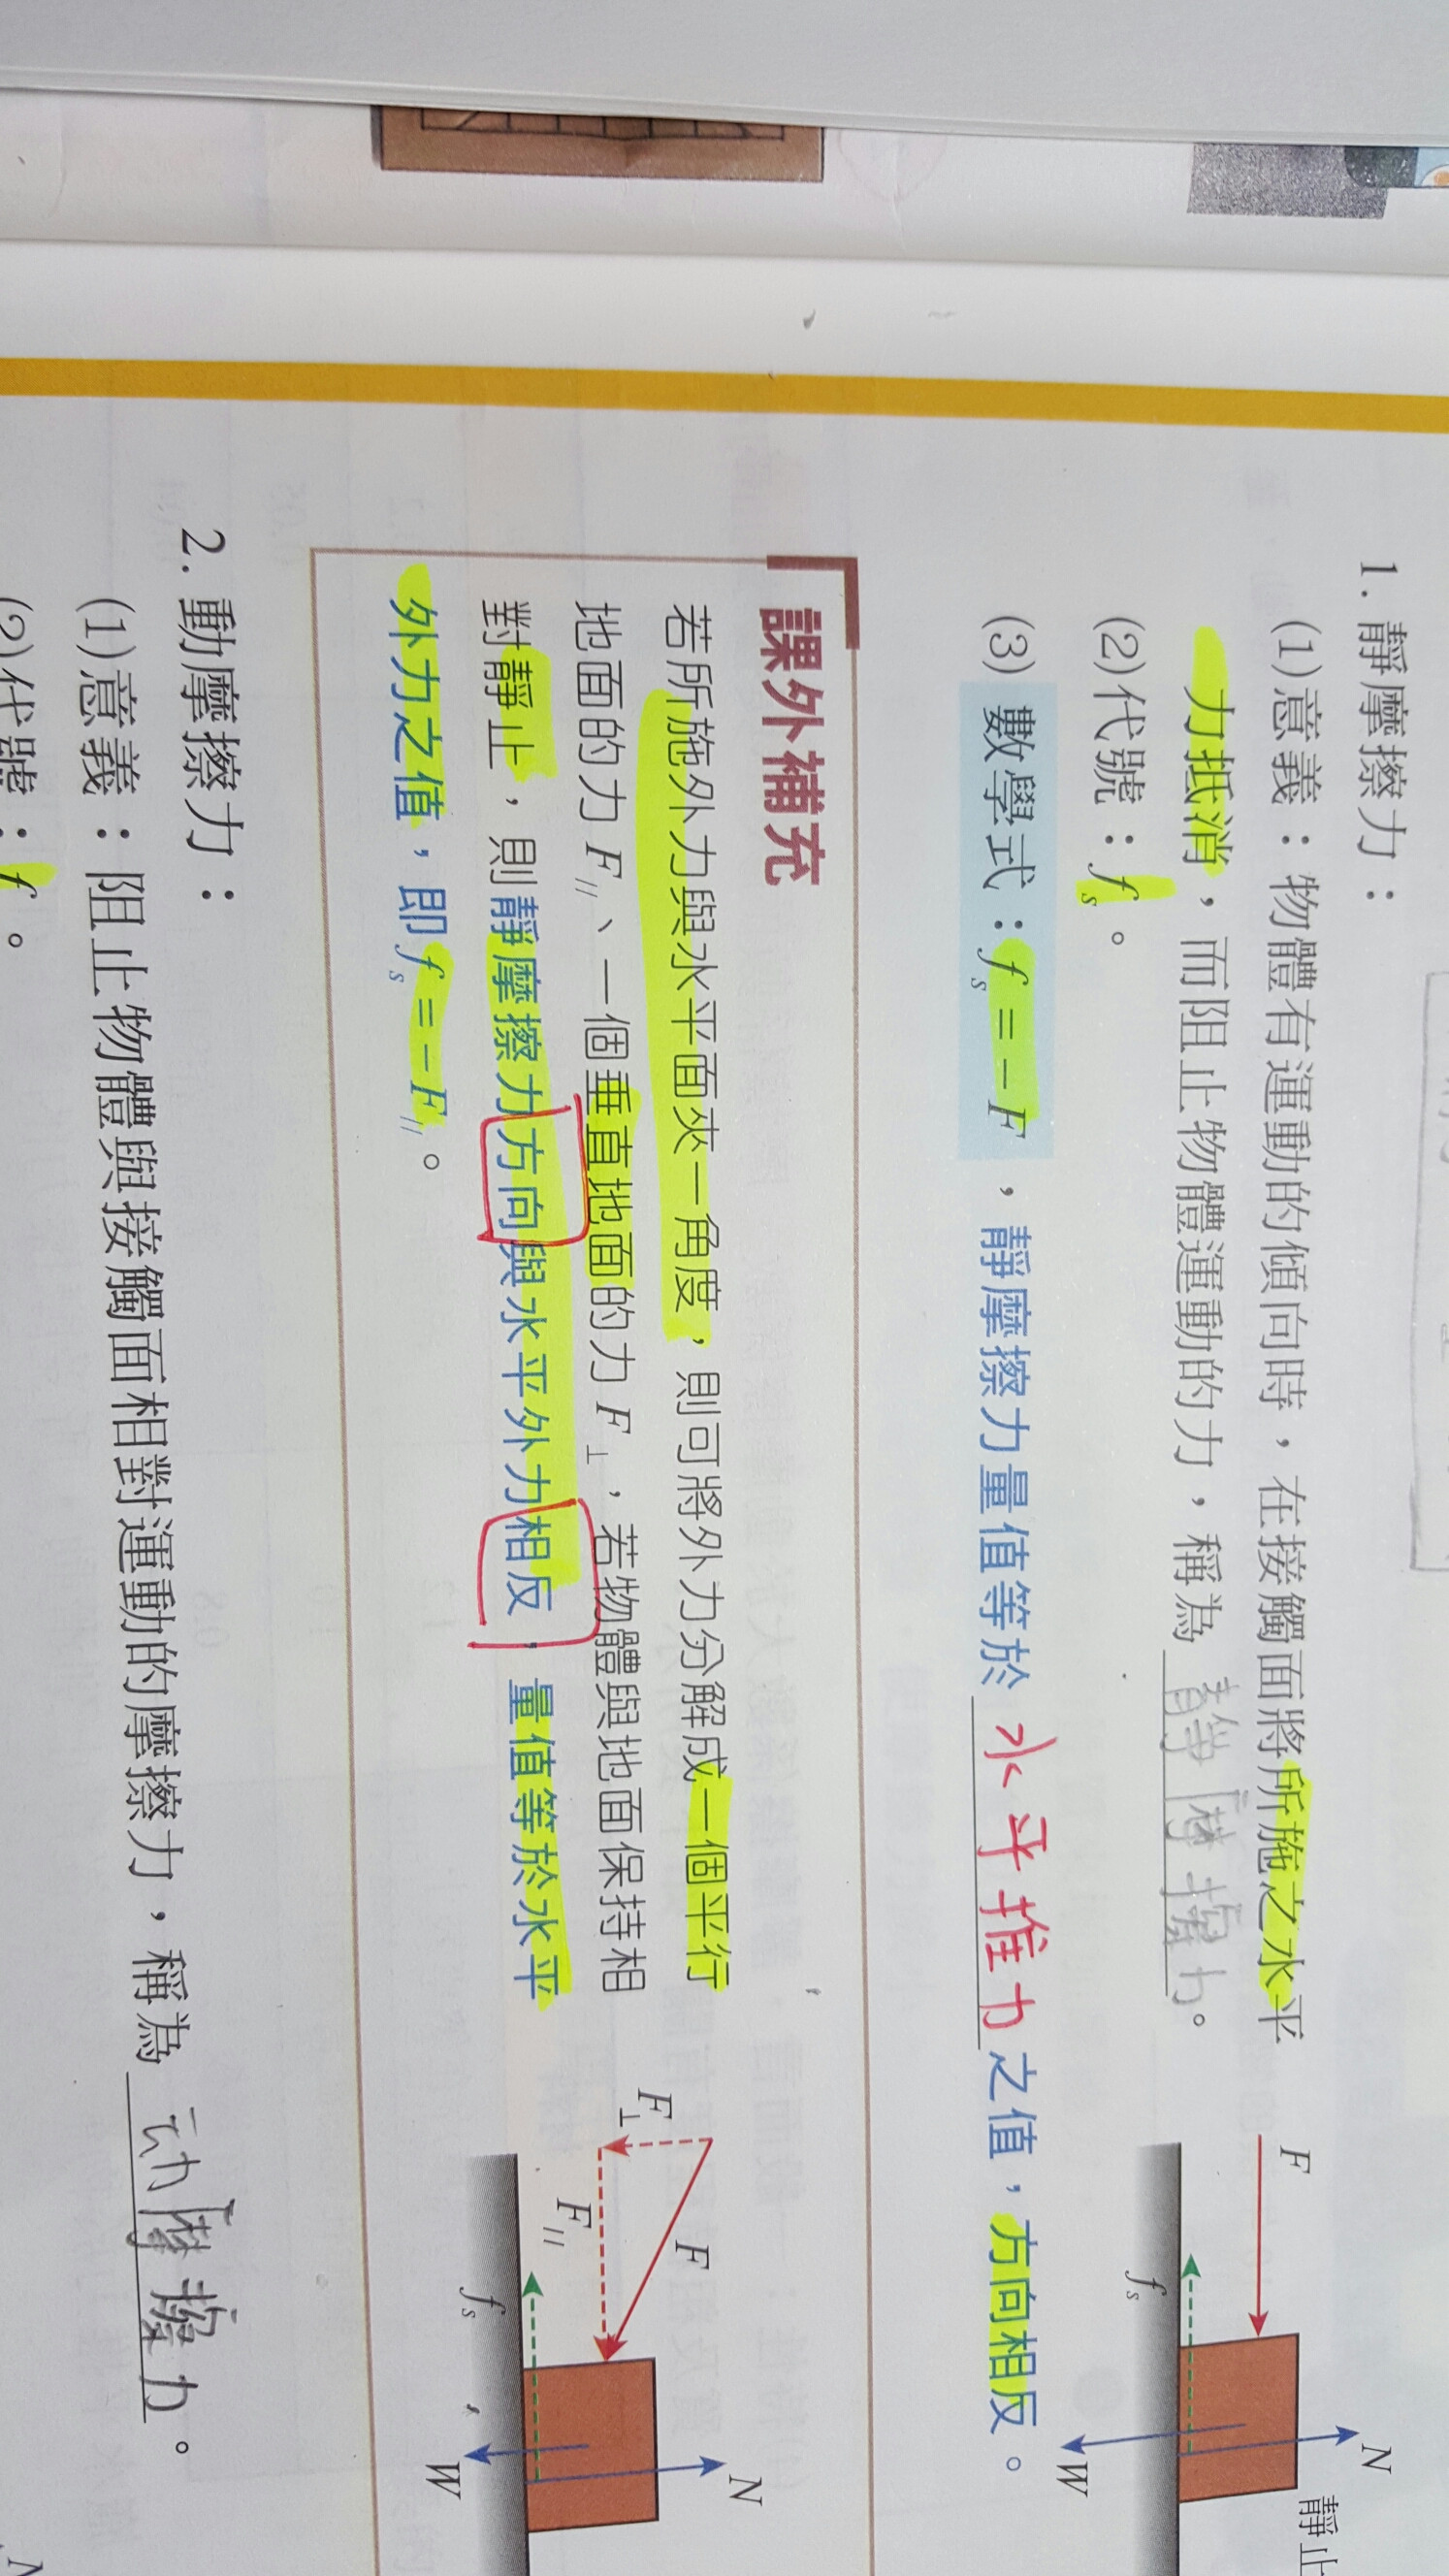 1. 靜摩擦力：
(1)意義：物體有運動的傾向時，在接觸面將所施之水平
力抵消，而阻止物體運動的力，稱為靜摩擦力。
(2)代號：fs。
(3) 數學式：fs = − F，靜摩擦力量值等於水平推力之值，方向相反。
F
fs
N
W
靜止
課外補充
若所施外力與水平面夾一角度，則可將外力分解成一個平行
地面的力 F//、一個垂直地面的力 F⊥，若物體與地面保持相
對靜止，則靜摩擦力方向與水平外力相反，量值等於水平
外力之值，即 fs = − F//。
F⊥
F
F//
fs
N
W
2. 動摩擦力：
(1)意義：阻止物體與接觸面相對運動的摩擦力，稱為动摩擦力。
(2)代號：f。
N